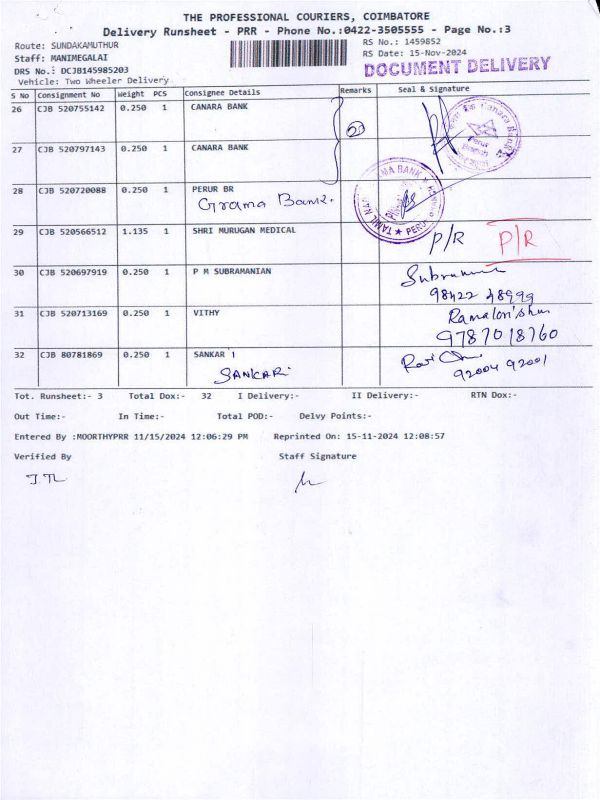 THE PROFESSIONAL COURIERS, COIMBATORE
Delivery Runsheet - PRR - Phone No.:0422-3505555 - Page No.:3
Route: SUNDAKAMUTHUR
RS No.: 1459852
Staff: MANIMEGALAI
RS Date: 15-Nov-2024
DRS No.: DCJB145985203
DOCUMENT DELIVERY
Vehicle: Two Wheeler Delivery
S No Consignment No Weight PCS Consignee Details Remarks Seal & Signature
26 CJB 520755142 0.250 1 CANARA BANK
27 CJB 520797143 0.250 1 CANARA BANK
28 CJB 520720088 0.250 1 PERUR BR
Grama Bank.
29 CJB 520566512 1.135 1 SHRI MURUGAN MEDICAL P/R P/R
30 CJB 520697919 0.250 1 P M SUBRAMANIAN
98422 48999
31 CJB 520713169 0.250 1 VITHY
9787018760
32 CJB 80781869 0.250 1 SANKAR I
SANKARI
92004 92001
Tot. Runsheet:- 3 Total Dox:- 32 I Delivery:- II Delivery:- RTN Dox:-
Out Time:- In Time:- Total POD:- Delvy Points:-
Entered By :MOORTHYPRR 11/15/2024 12:06:29 PM Reprinted On: 15-11-2024 12:08:57
Verified By Staff Signature